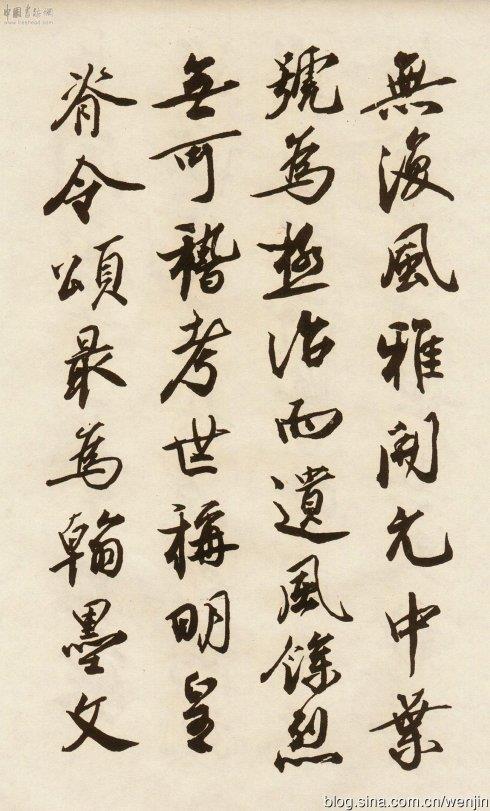 中國書法網
www.freehead.com
無復風雅開元中業
號為極治而遺風餘烈
無可稽考世稱明皇
脊令頌最為翰墨文
blog.sina.com.cn/wenjin